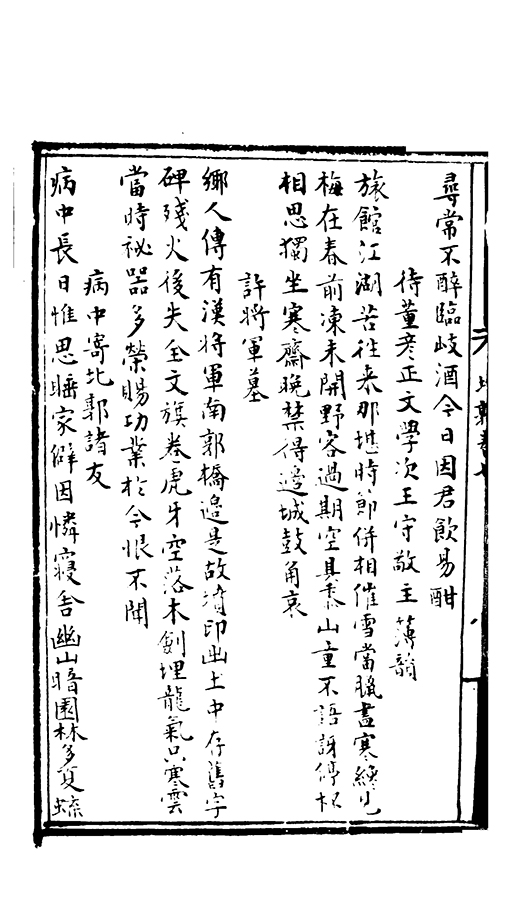 尋常不醉臨岐酒今日因君飲易酣
待董彥正文學次王守敬主簿韻
旅館江湖苦往来那堪時節併相催雪當臘盡寒纔
梅在春前凍未開野客過期空具黍山童不語訝停杯
相思獨坐寒齋晚禁得邉城鼓角哀
許將軍墓
鄉人傳有漢將軍南郭橋邉是故墳印幽土中存舊字
碑殘火後失全文旗卷虎牙空落木劍埋龍氣只寒雲
當時祕器多榮賜功業於今恨不聞
病中寄北郭諸友
病中長日惟思睡家僻因憐寢舎幽山暗園林多夏
北郭卷七